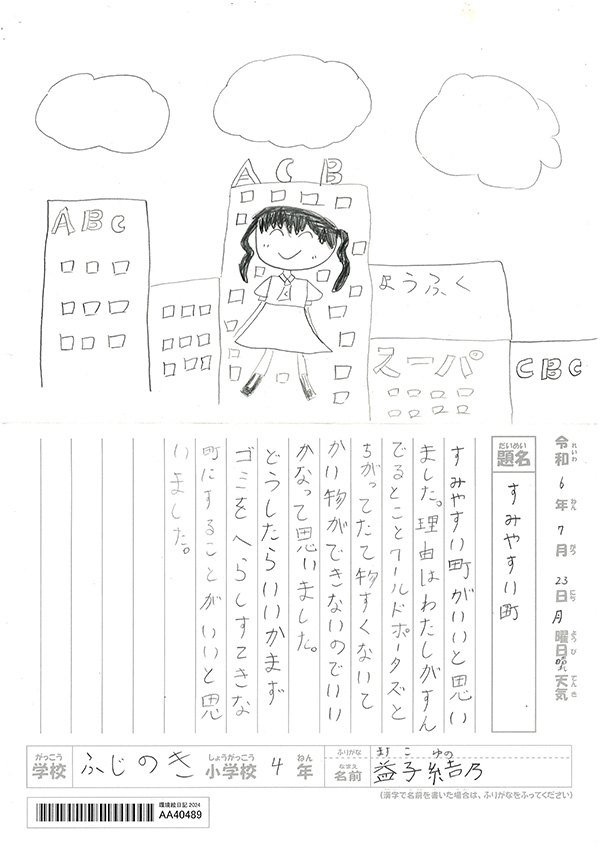 ABC
ACB
ようふく
スーパ
CBC
令和6年7月23日月曜日天気
れいわ ねん がつ にち ようび てんき
だいめい
題名 すみやすい町
すみやすい町がいいと思い
ました。理由はわたしがすん
でるとことワールドポーターズと
ちがってたて物すくないて
かい物ができないのでいい
かなって思いました。
どうしたらいいかまず
ゴミをへらしすてきな
町にすることがいいと思
いました。
がっこう しょうがっこう ねん
学校 ふじのき 小学校 4年
ふりがな ましこ ゆの
なまえ
名前 益子結乃
(漢字で名前を書いた場合は、ふりがなをふってください)
環境絵日記 2024
AA40489